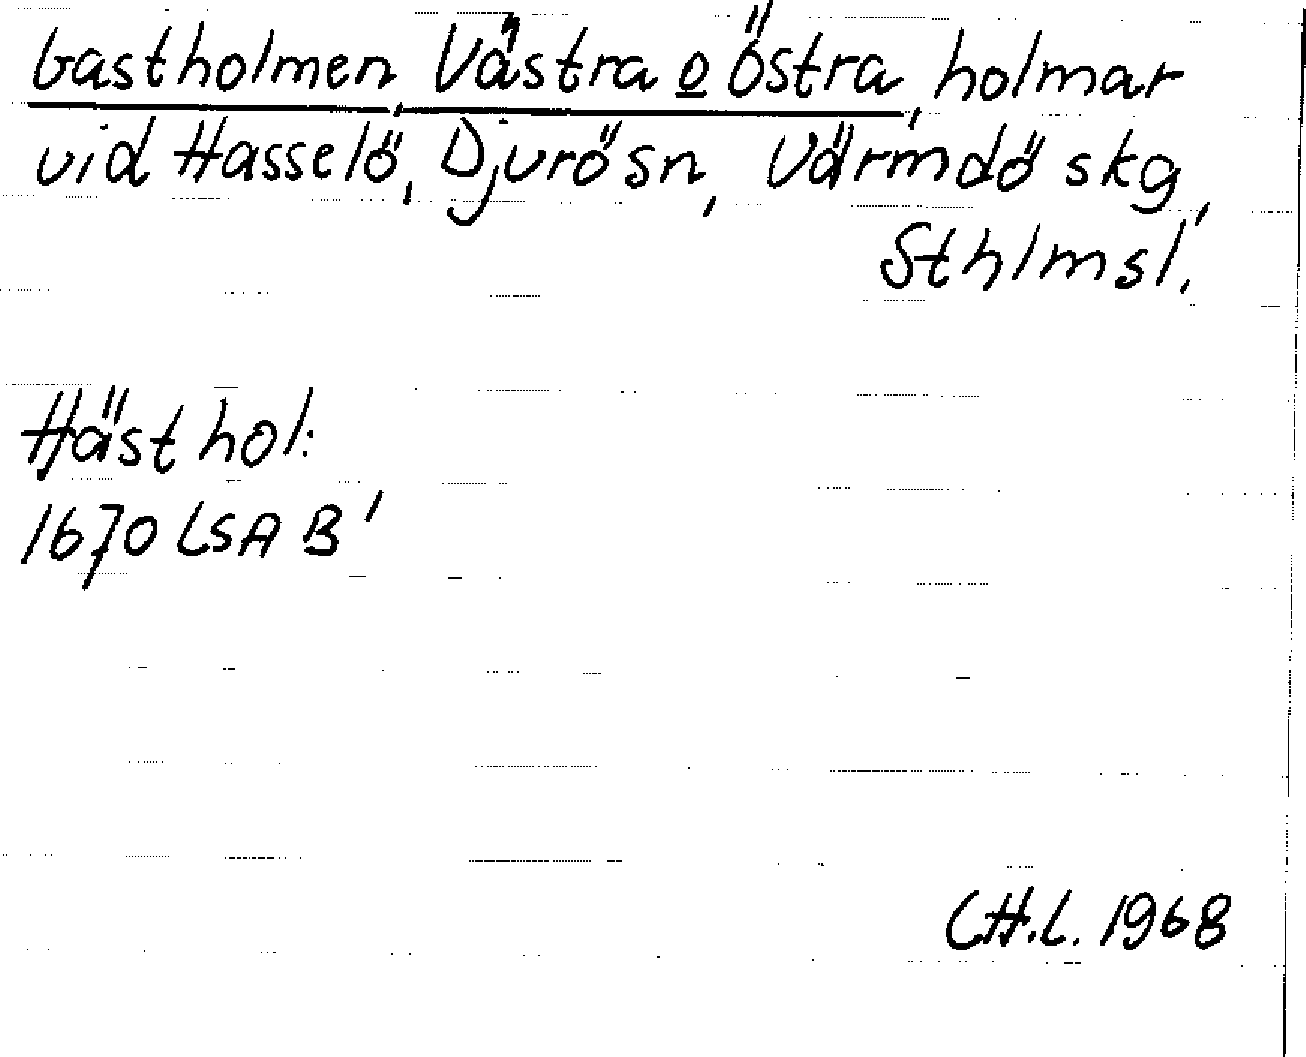 Gastholmen, Västra o Östra, holmar
vid Hasselö, Djurö sn, Värmdö skg,
Sthlmsl.
Häst hol:
1670 LSA B'
C.H.L. 1968